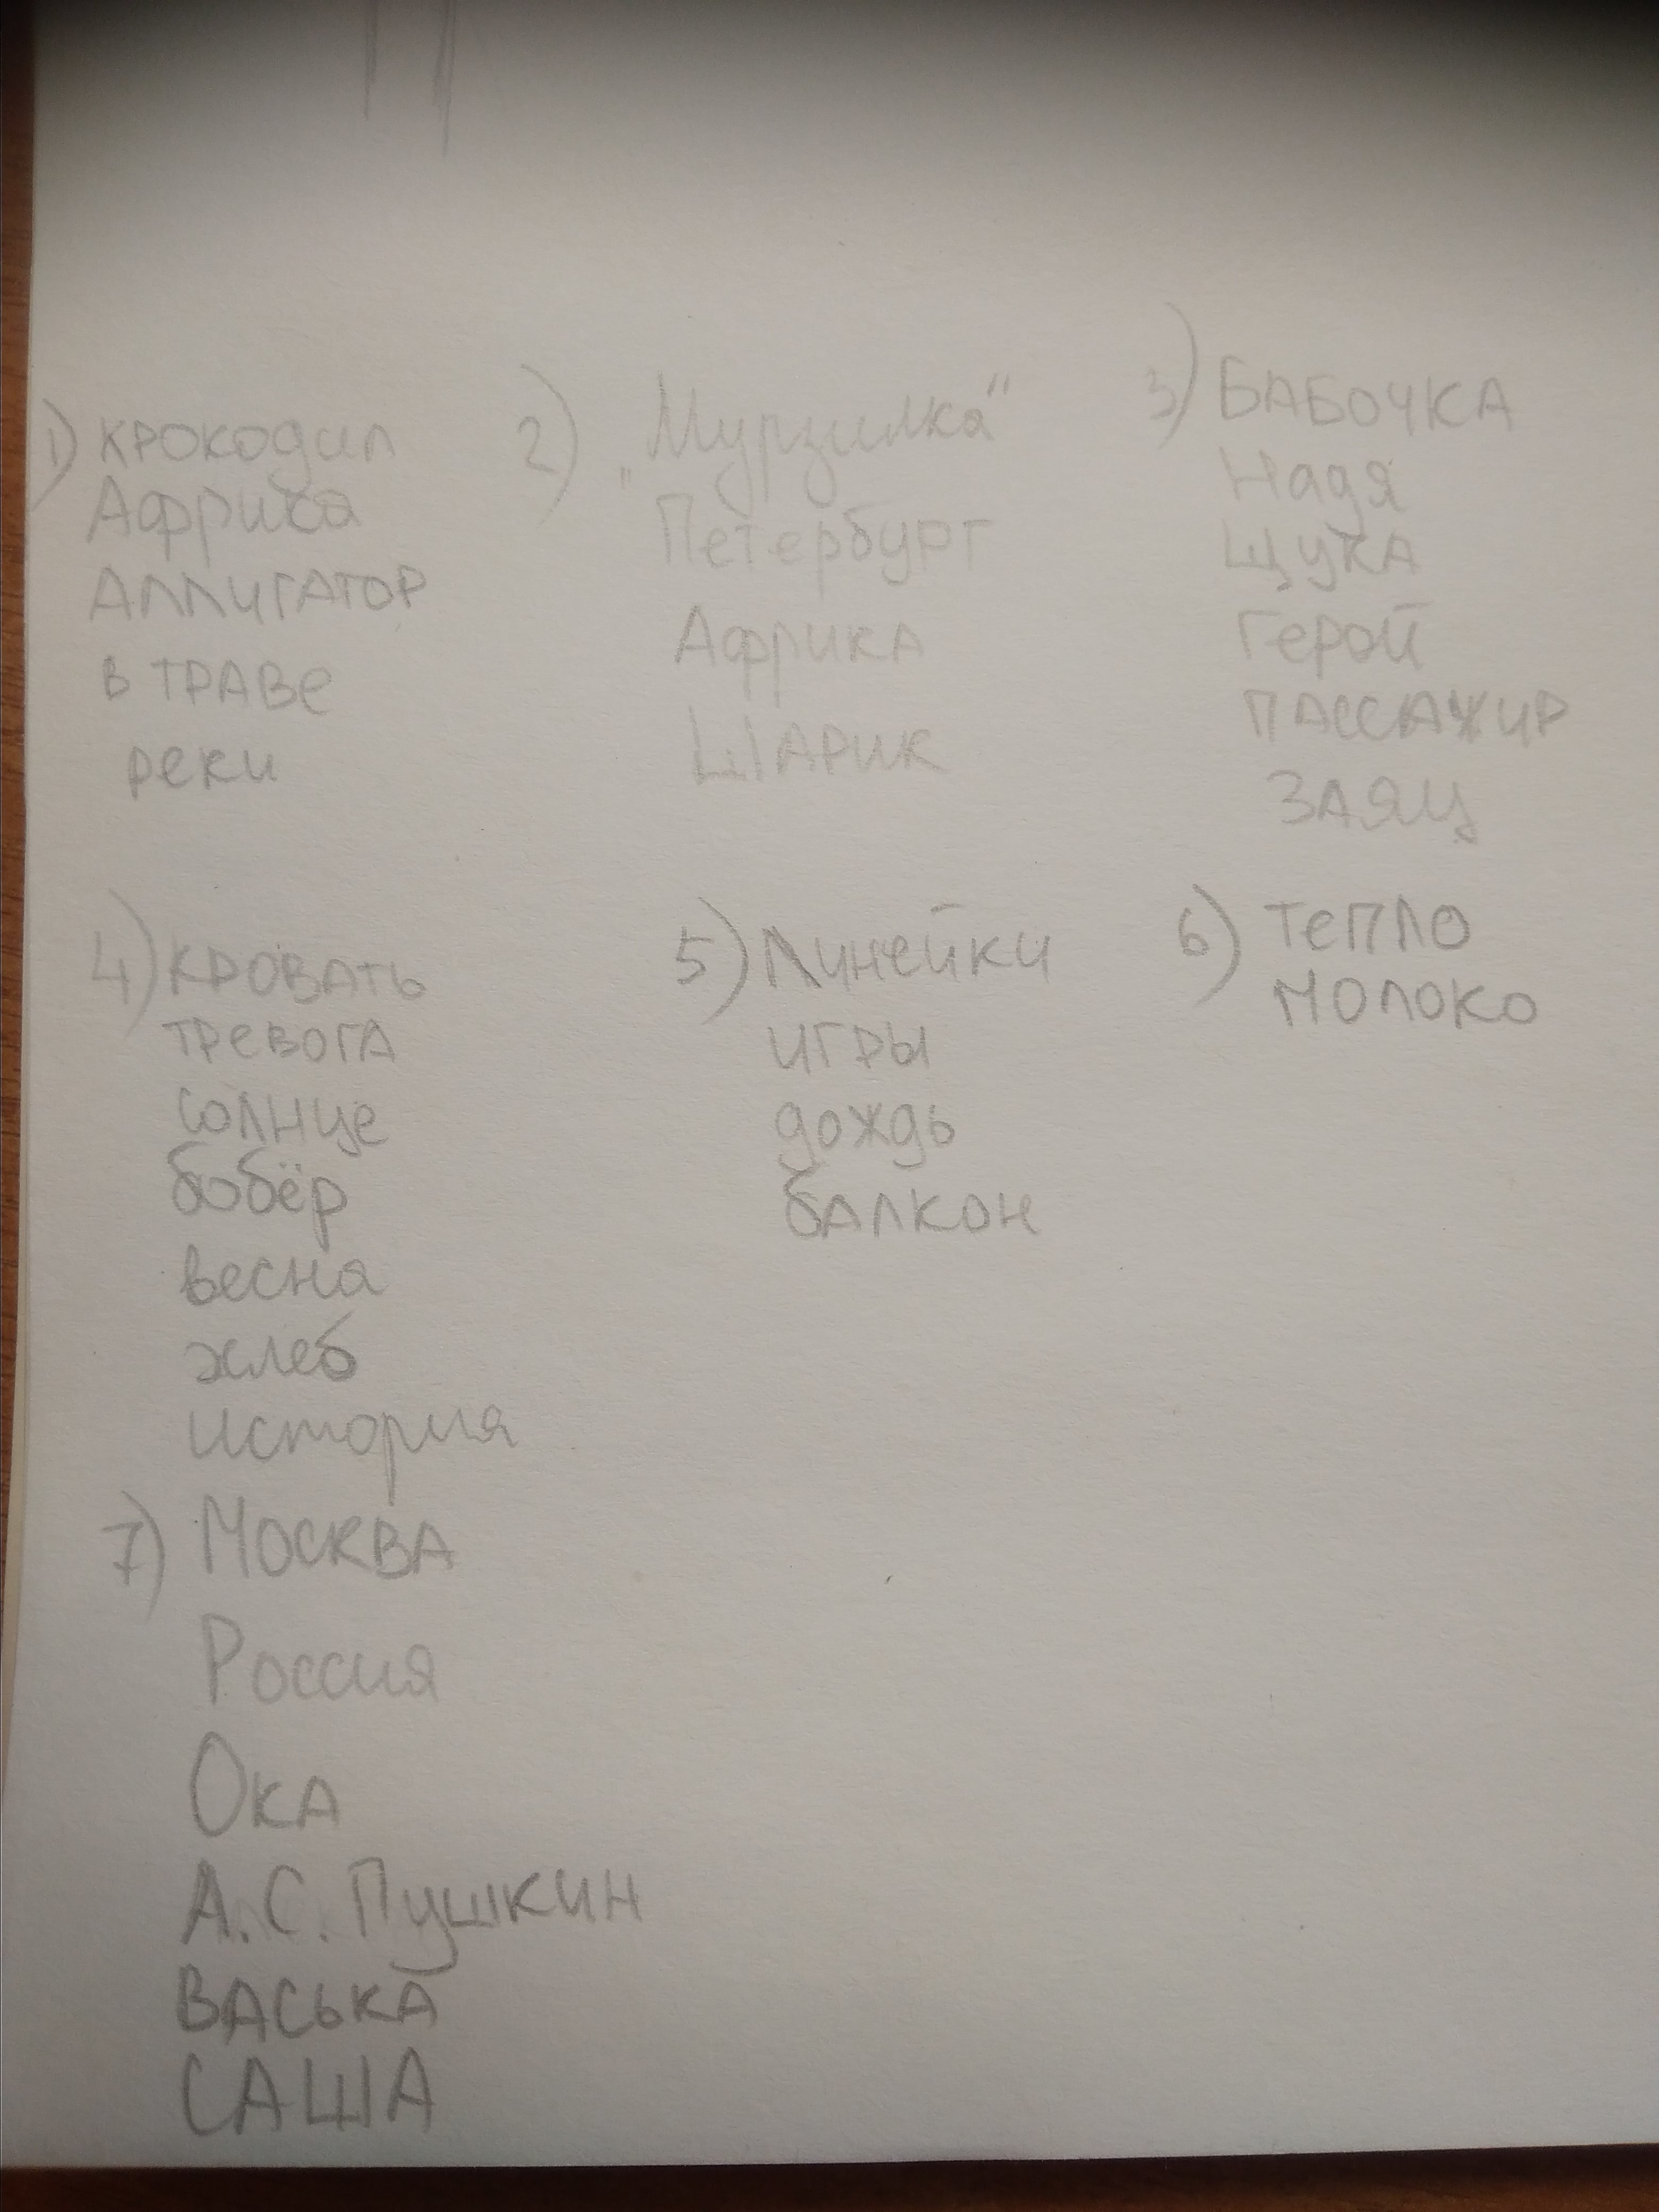 1) крокодил
Африка
Аллигатор
в траве
реки
2) „Мурзилка"
Петербург
Африка
Шарик
3) БАБОЧКА
Надя
Щука
Герой
ПАССАЖИР
ЗАЯЦ
4) кровать
тревога
солнце
бобёр
весна
хлеб
история
5) Линейки
игры
дождь
балкон
6) тепло
молоко
7) Москва
Россия
Ока
А.С. Пушкин
ВАСЬКА
САША